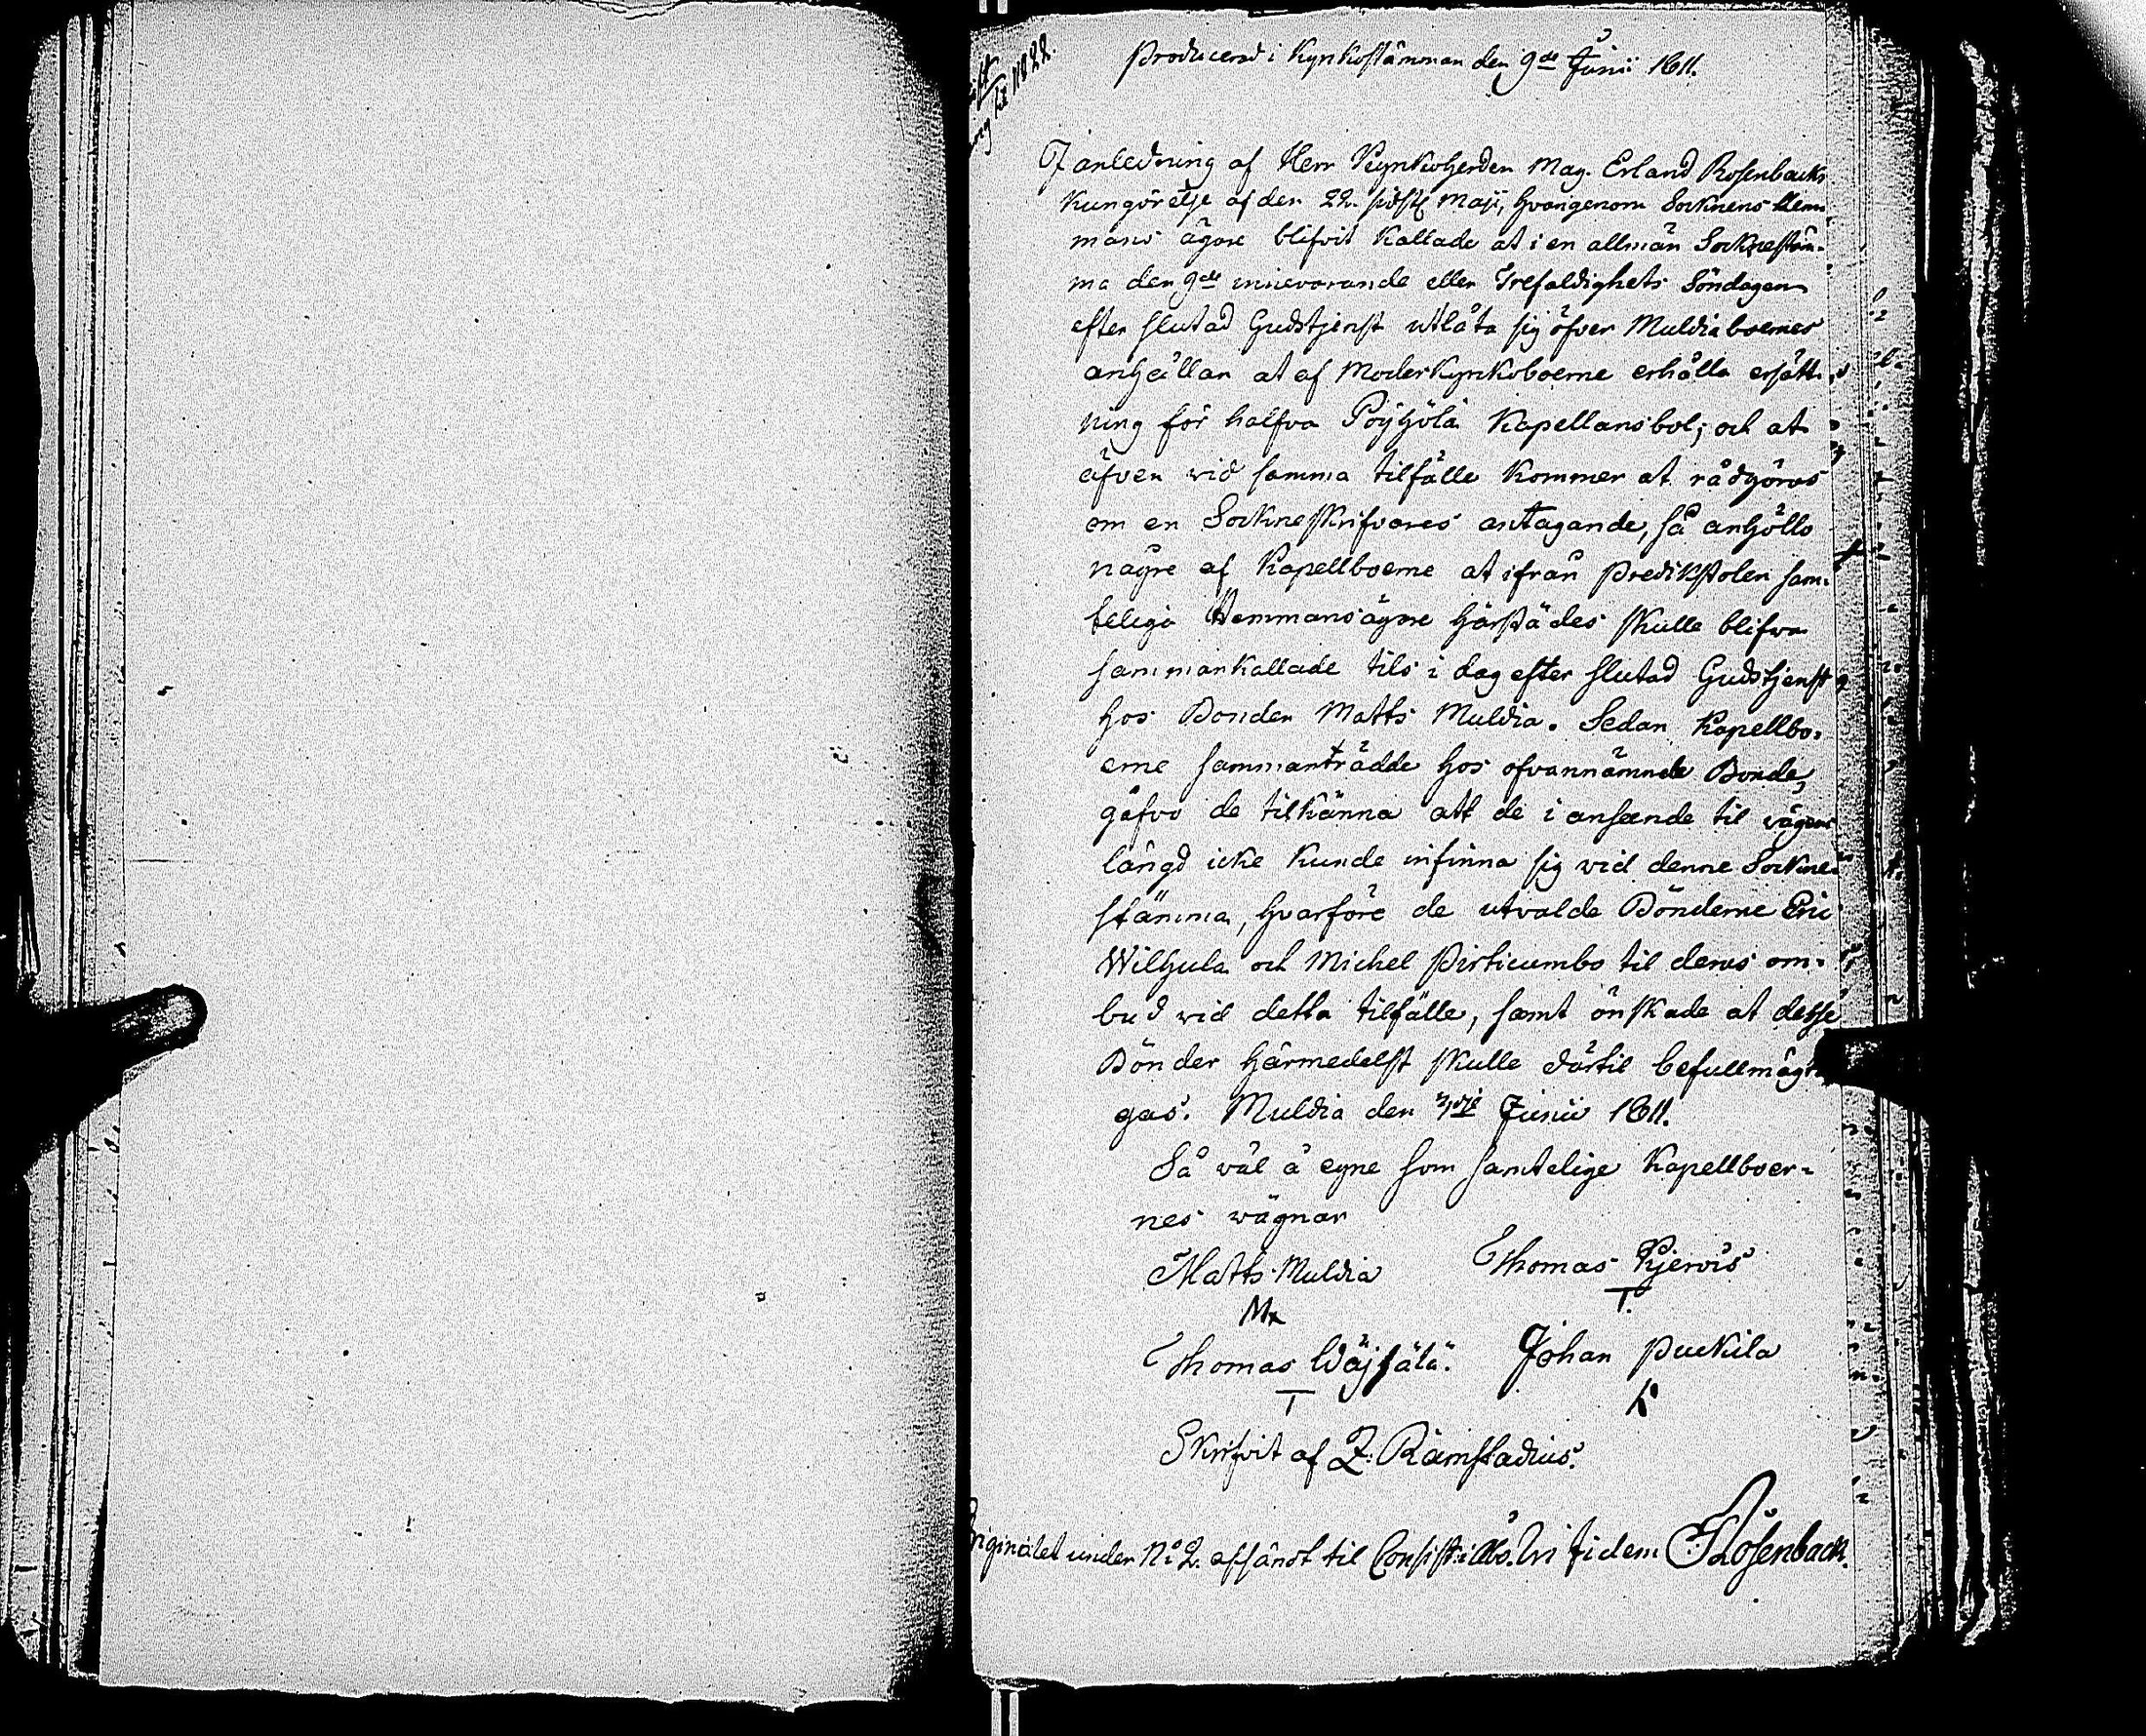 Producerad i Kyrkostämman den 9de Junii 1811.
I anledning af Herr Kyrkoherden Mag. Erland Rosenbacks
Kungörelse af den 22. sistl. Maji, hvarigenom Socknens Hem-
mans ägare blifvit Kallade at i en allmän Sockneställ-
ma den 9de innevarande eller Trefaldighets Söndagen
efter slutad Gudstjenst utlåta sig öfver Muldiaboernes
anhållan at af Moderkyrkoboerne erhålla ersätt-
ning för halfva Pöyhölä Kapellansbol; och at
äfven vid samma tilfälle kommer at rådgöras
om en Sockneskrifvares antagande, så anhöllo
någre af Kapellboerne at ifrån Predikstolen sam-
telige Hemmansägare härstädes skulle blifva
sammankallade tils i dag efter slutad Gudstjenst
hos Bonden Matts Muldia. Sedan Kapellbo-
erne sammanträdde hos ofvannämnde Bonde,
gåfvo de tilkänna att de i anseende til vägens
längd icke kunde infinna sig vid denne Sockne-
stämma, hvarföre de utvalde Bönderne Eric
Wilhula och Michel Pirticumbo til deras om-
bud vid detta tilfälle, samt önskade at desse
Bönder härmedelst skulle därtil befullmägti-
gas. Muldia den 3dje Junii 1811.
Så väl å egne som samtelige Kapellboer-
nes vägnar
Matts Muldia Thomas Kjervis
M T.
Thomas Wäjsälä. Johan Puckila
T
Skrifvit af Z. Ramstadius.
Originalet under No 2. afsändt til Consist. i Åbo. In fidem Rosenback.